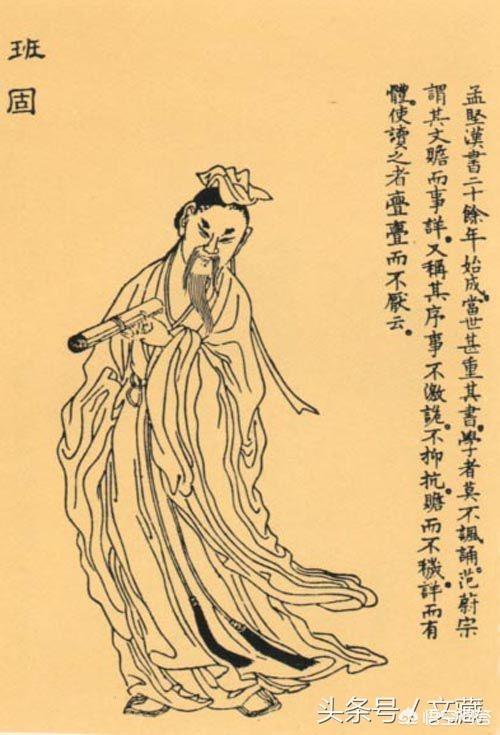 班固
孟堅漢書二十餘年始成。當世甚重其書。學者莫不諷誦。范蔚宗
謂其文贍而事詳。又稱其序事不激詭。不抑抗。贍而不穢。詳而有
體。使讀之者亹亹而不厭云。
头条号／文藏